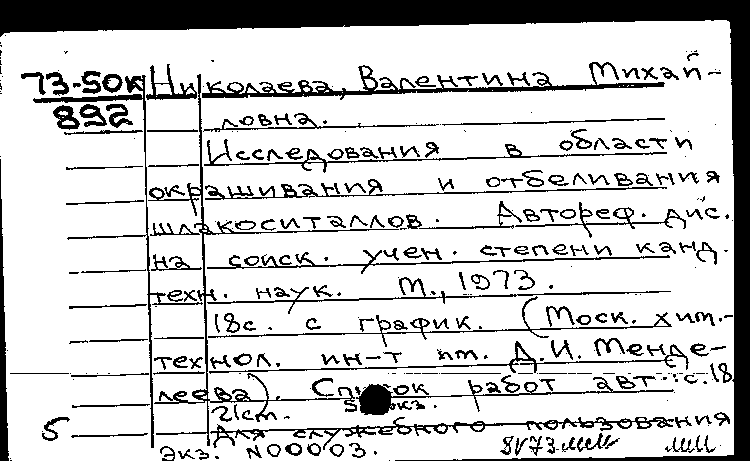 73-50к Николаева, Валентина Михай-
892 ловна.
Исследования в области
окрашивания и отбеливания
шлакоситаллов. Автореф. дис.
на соиск. учен. степени канд.
техн. наук. М., 1973.
18с. с график. (Моск. хим.-
технол. ин-т им. Д.И. Менде-
леева). Список работ авт.: с.18
21ст.
5 Для служебного пользования
Экз. N00003.